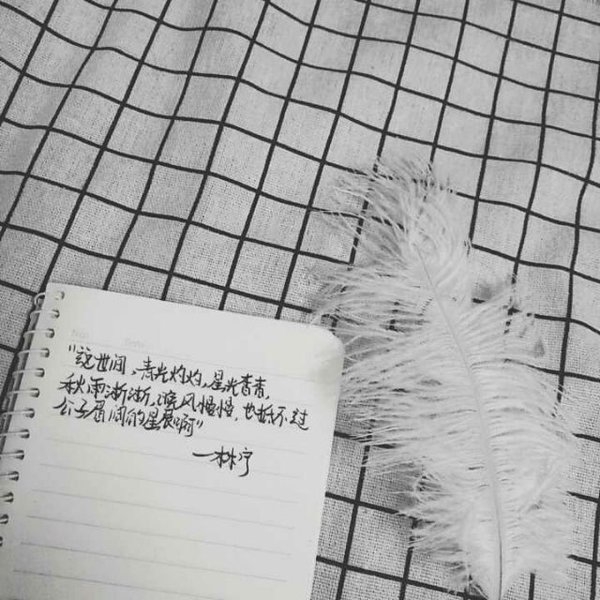 "这世间，青光灼灼，星光杳杳，
秋雨淅淅，晚风慢慢，也抵不过
公子眉间的星辰啊"
—林宁